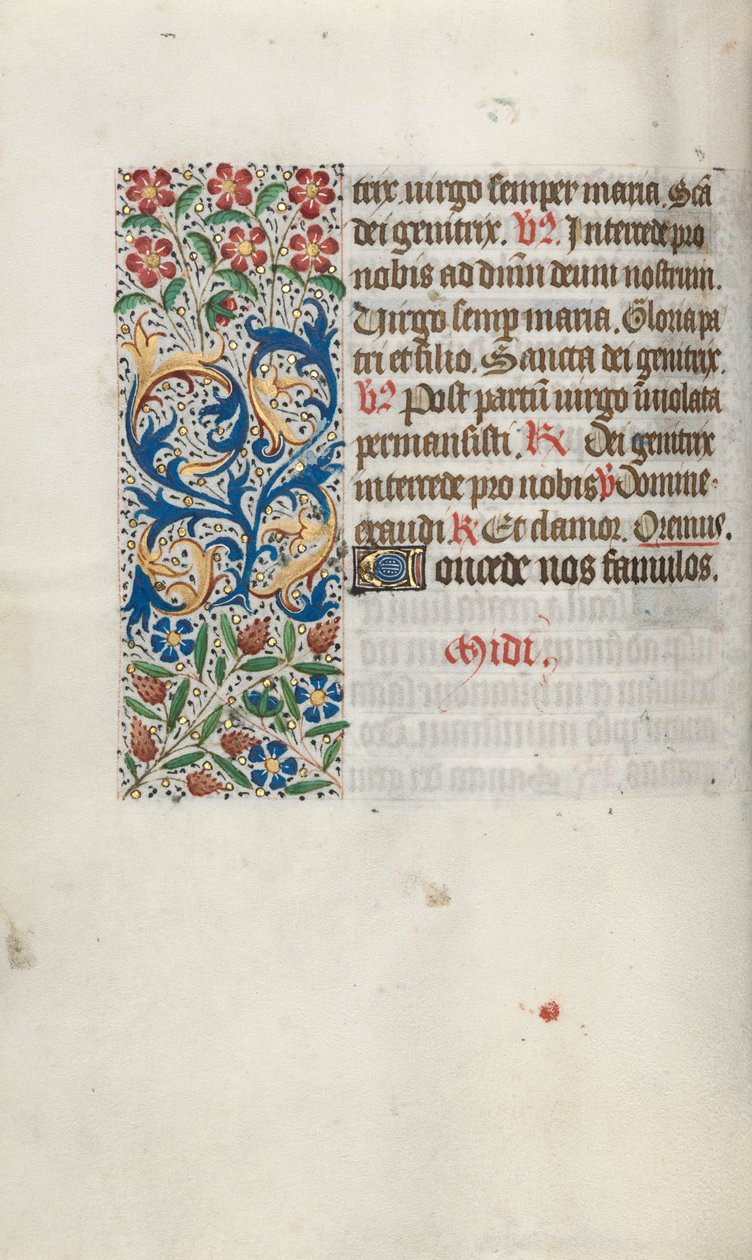 trix. uirgo semper maria. Scā
dei genitrix. V̄ꝰ. Intercede pro
nobis ad dn̄m deum nostrum.
Uirgo semp maria. Gloria pa
tri et filio. Sancta dei genitrix.
V̄ꝰ Post partū uirgo īuiolata
permansisti. R Dei genitrix
intercede pro nobis V Domine
exaudi R Et clamor. Oremus.
Concede nos famulos.
Midi.